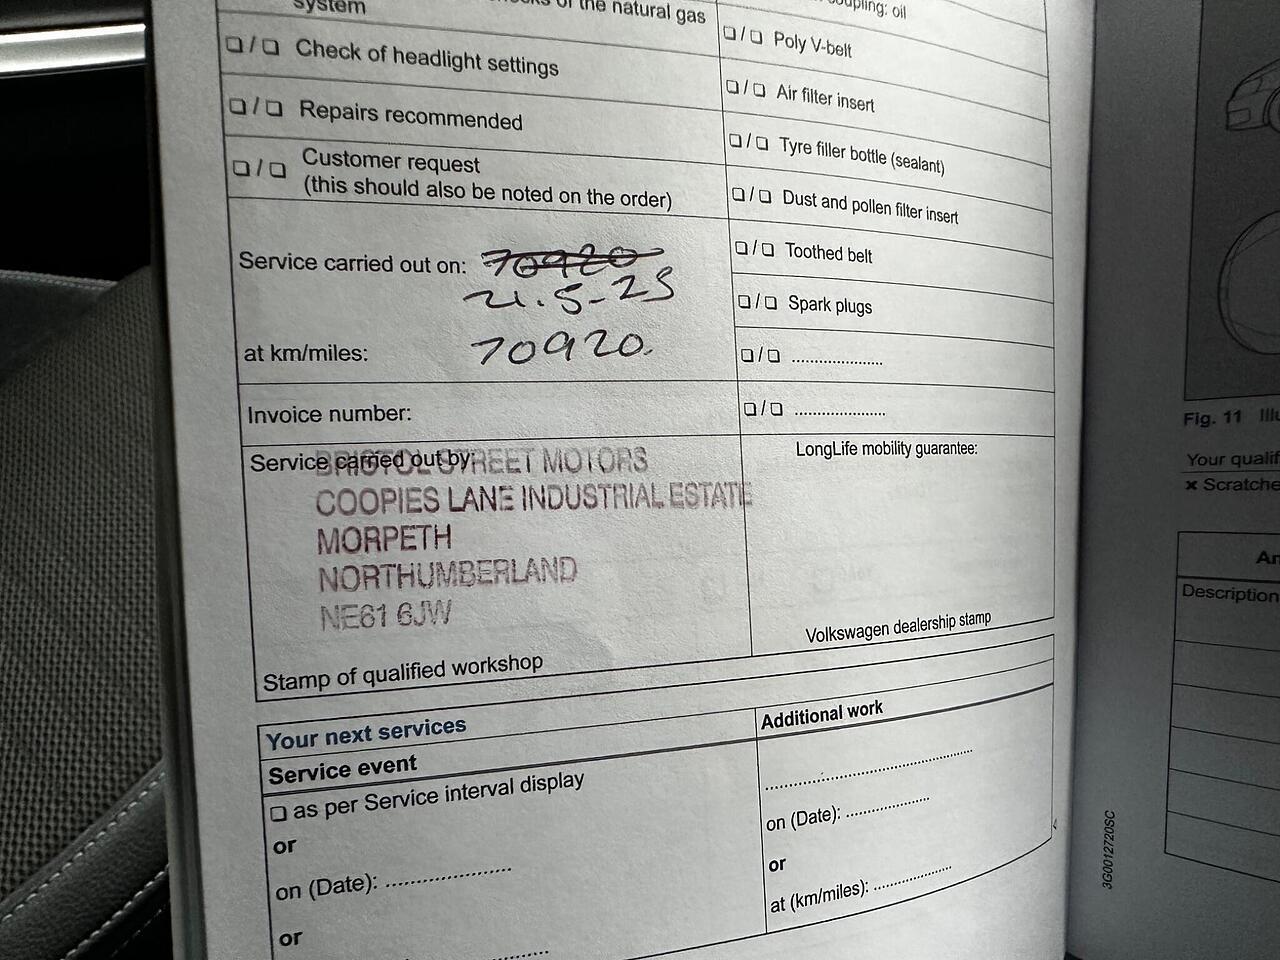 system
of the natural gas
❏ / ❏ Check of headlight settings
❏ / ❏ Repairs recommended
❏ / ❏ Customer request
(this should also be noted on the order)
Service carried out on: 70920
21.5-25
at km/miles: 70920.
Invoice number:
Service carried out by:
BRISTOL STREET MOTORS
COOPIES LANE INDUSTRIAL ESTATE
MORPETH
NORTHUMBERLAND
NE61 6JW
Stamp of qualified workshop
coupling: oil
❏ / ❏ Poly V-belt
❏ / ❏ Air filter insert
❏ / ❏ Tyre filler bottle (sealant)
❏ / ❏ Dust and pollen filter insert
❏ / ❏ Toothed belt
❏ / ❏ Spark plugs
❏ / ❏ ......................
❏ / ❏ ......................
LongLife mobility guarantee:
Volkswagen dealership stamp
Your next services
Service event
❏ as per Service interval display
or
on (Date): ......................
or
Additional work
.....................................
on (Date): ....................
or
at (km/miles): ...................
3G0012720SC
Fig. 11
Your qualif
× Scratche
Description